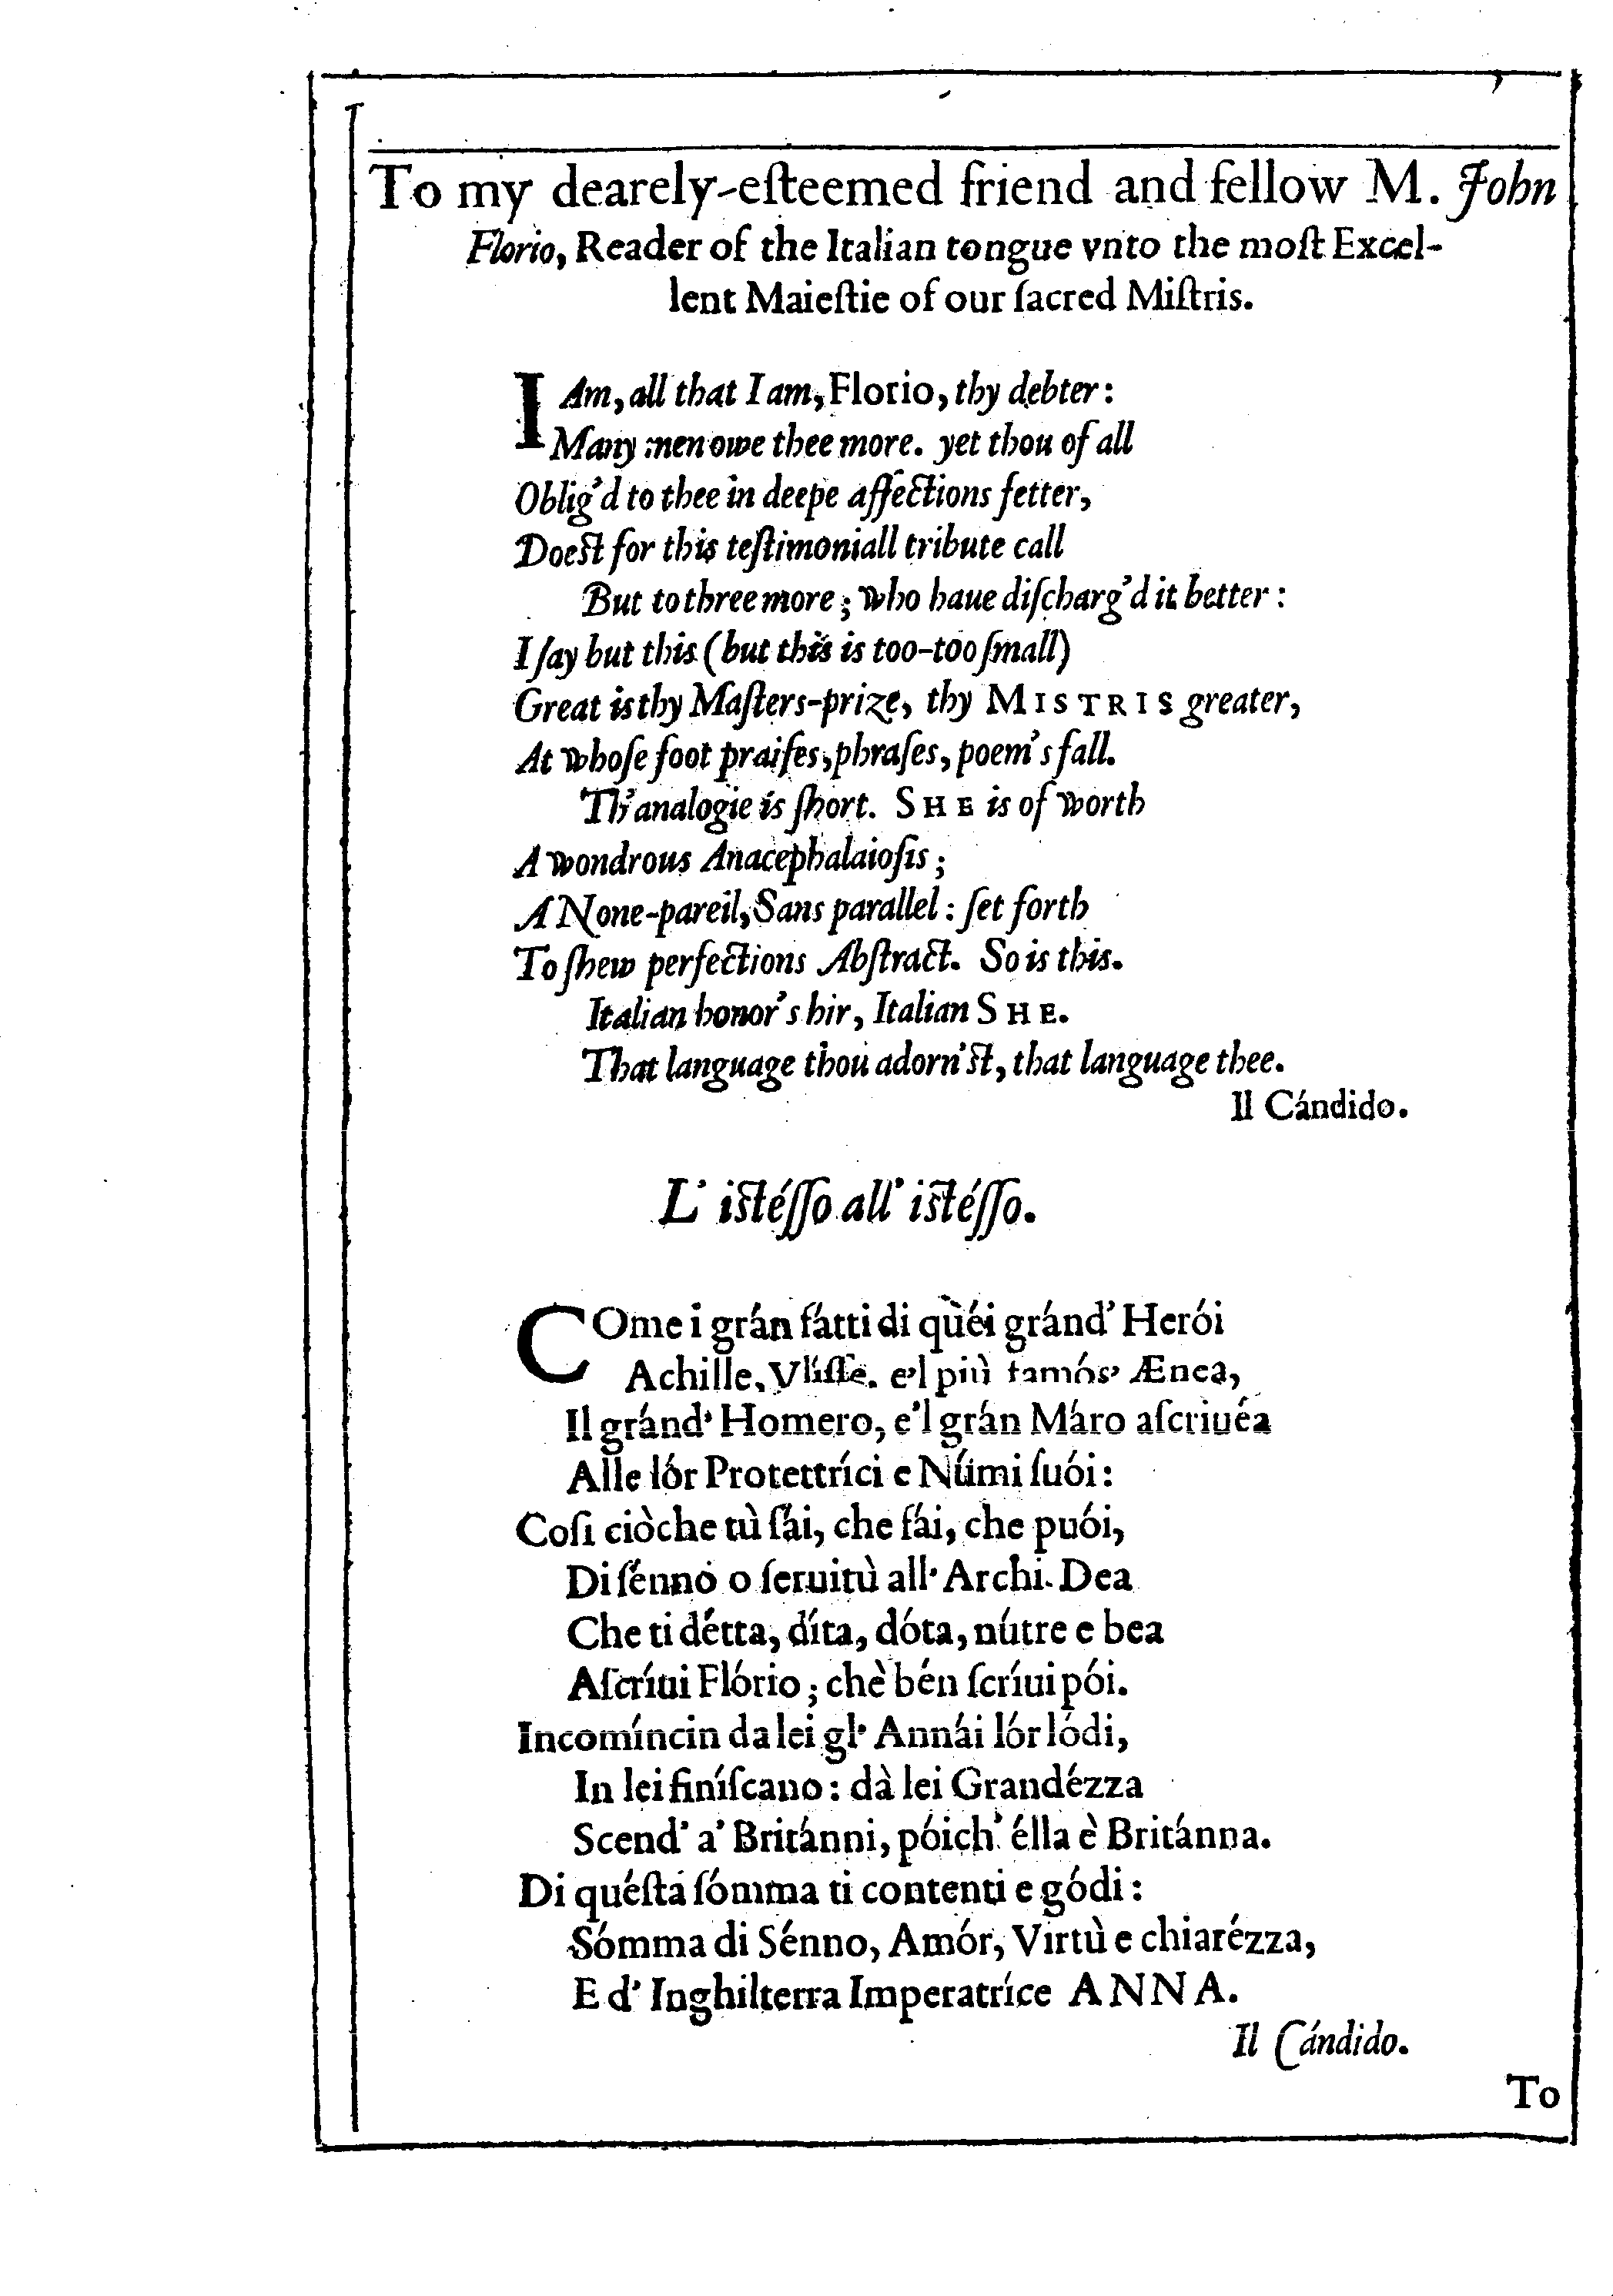 To my dearely-eſteemed friend and fellow M. John
Florio, Reader of the Italian tongue vnto the moſt Excel-
lent Maieſtie of our ſacred Miſtris.
I Am, all that I am, Florio, thy debter:
Many men owe thee more. yet thou of all
Oblig'd to thee in deepe affections fetter,
Doest for this teſtimoniall tribute call
But to three more; who haue diſcharg'd it better:
I ſay but this (but this is too-too ſmall)
Great is thy Maſters-prize, thy MISTRIS greater,
At whoſe foot praiſes, phraſes, poem's fall.
Th'analogie is ſhort. SHE is of worth
A wondrous Anacephalaioſis;
A None-pareil, Sans parallel: ſet forth
To ſhew perfections Abſtract. So is this.
Italian honor's hir, Italian SHE.
That language thou adorn'st, that language thee.
Il Cándido.
L' istéſſo all' istéſſo.
COme i grán fátti di qùéi gránd' Herói
Achille, Vliſſe, e'l più famós' Ænea,
Il gránd' Homero, e'l grán Máro aſcriuéa
Alle lór Protettríci e Númi ſuói:
Coſi ciòche tù ſái, che fái, che puói,
Di ſénno o ſeruitù all' Archi-Dea
Che ti détta, díta, dóta, nútre e bea
Aſcríui Flório; chè bén ſcríui pói.
Incomíncin da lei gl' Annái lór lódi,
In lei finíſcano: dà lei Grandézza
Scend' a' Británni, póich' élla è Británna.
Di quéſta ſómma ti contenti e gódi:
Sómma di Sénno, Amór, Virtù e chiarézza,
E d' Inghilterra Imperatríce ANNA.
Il Cándido.
To